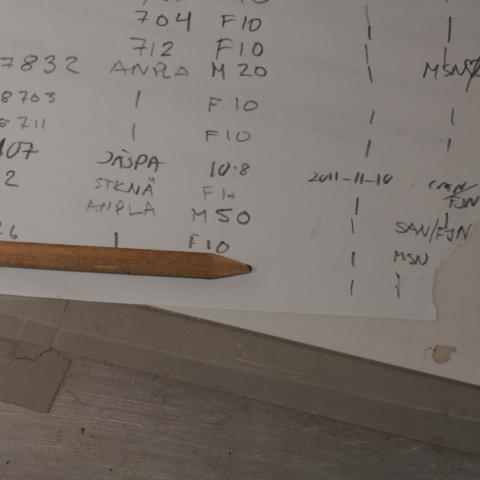 704 F10 | |
712 F10 | |
7832 ANPLA M 20 | MSN
8703 | F 10 | |
711 | F10 | |
107 JÄSPA 10:8 2011-11-10
2 STKNÄ F | FJN
ANPLA M 50 | SAN/FJN
26 | F 10 | MSN
|